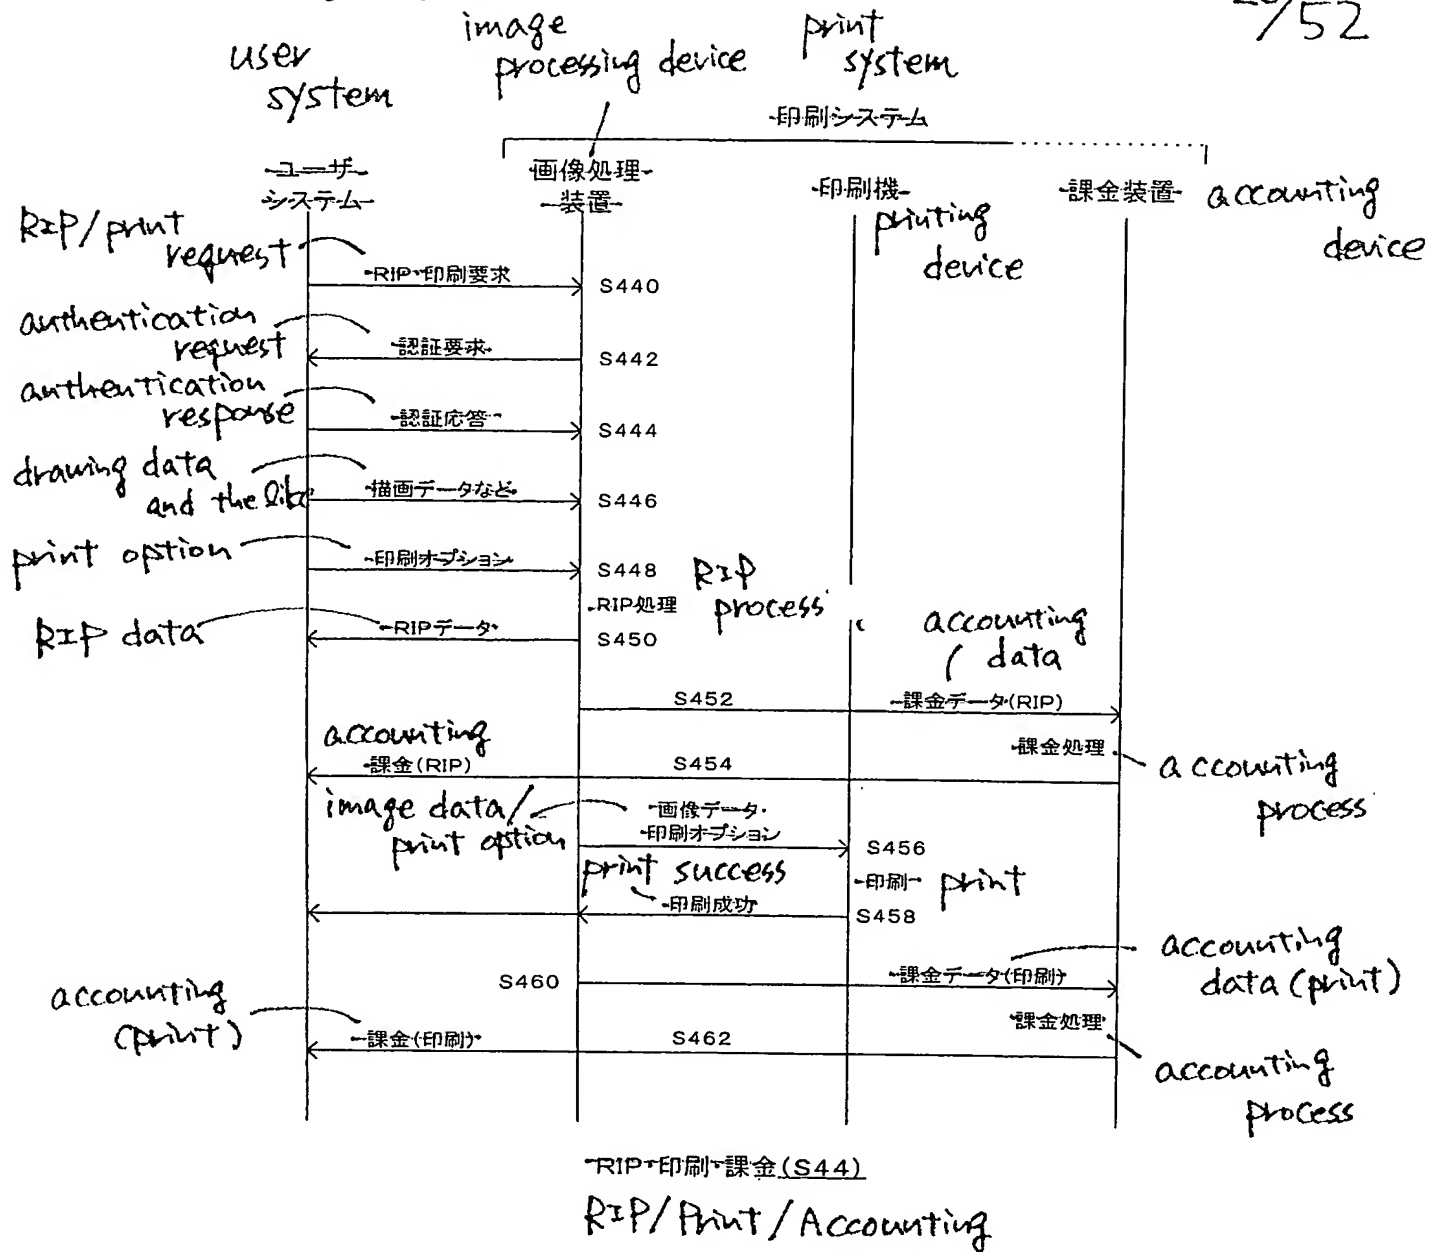 /52
user
system
image
processing device
print
system
印刷システム
ユーザ
システム
画像処理
装置
印刷機
課金装置
printing
device
accounting
device
RIP/print
request
RIP・印刷要求
S440
authentication
request
認証要求
S442
authentication
response
認証応答
S444
drawing data
and the like
描画データなど
S446
print option
印刷オプション
S448
RIP処理
RIP
process
RIP data
RIPデータ
S450
accounting
data
S452
課金データ(RIP)
accounting
課金(RIP)
S454
課金処理
accounting
process
image data/
print option
画像データ・
印刷オプション
S456
print success
印刷成功
印刷
print
S458
S460
課金データ(印刷)
accounting
data (print)
accounting
(print)
課金(印刷)
S462
課金処理
accounting
process
RIP・印刷・課金(S44)
RIP/Print/Accounting